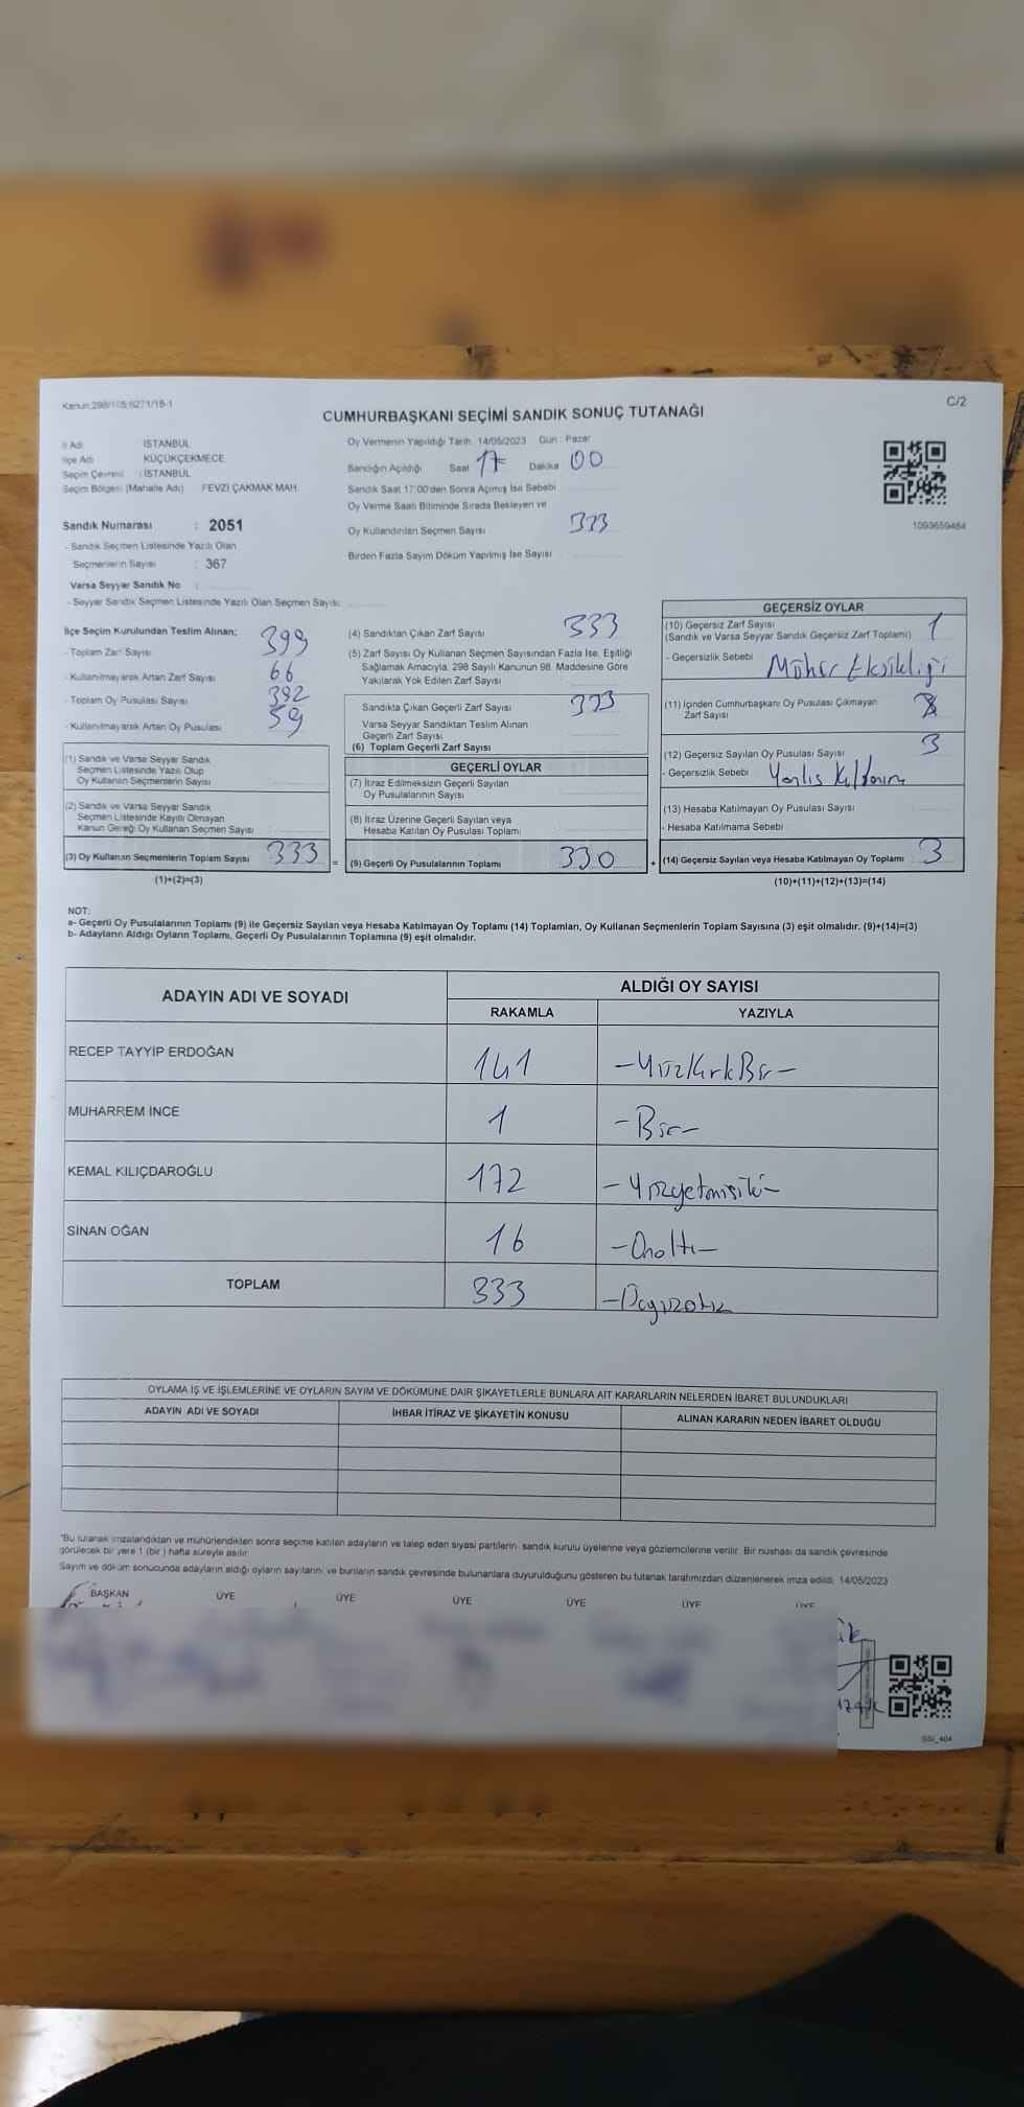 Kanun:298/105;6271/15-1
C/2
CUMHURBAŞKANI SEÇİMİ SANDIK SONUÇ TUTANAĞI
İl Adı İSTANBUL
İlçe Adı KÜÇÜKÇEKMECE
Seçim Çevresi : İSTANBUL
Seçim Bölgesi (Mahalle Adı) FEVZİ ÇAKMAK MAH.
Sandık Numarası : 2051
- Sandık Seçmen Listesinde Yazılı Olan
Seçmenlerin Sayısı : 367
Varsa Seyyar Sandık No :
- Seyyar Sandık Seçmen Listesinde Yazılı Olan Seçmen Sayısı:
Oy Vermenin Yapıldığı Tarih: 14/05/2023 Gün : Pazar
Sandığın Açıldığı Saat 17 Dakika 00
Sandık Saat 17:00'den Sonra Açılmış İse Sebebi
Oy Verme Saati Bitiminde Sırada Bekleyen ve
Oy Kullandırılan Seçmen Sayısı 333
Birden Fazla Sayım Döküm Yapılmış İse Sayısı
1093659464
İlçe Seçim Kurulundan Teslim Alınan:
- Toplam Zarf Sayısı 399
- Kullanılmayarak Artan Zarf Sayısı 66
- Toplam Oy Pusulası Sayısı 392
- Kullanılmayarak Artan Oy Pusulası 59
(1) Sandık ve Varsa Seyyar Sandık
Seçmen Listesinde Yazılı Olup
Oy Kullanan Seçmenlerin Sayısı
(2) Sandık ve Varsa Seyyar Sandık
Seçmen Listesinde Kayıtlı Olmayan
Kanun Gereği Oy Kullanan Seçmen Sayısı
(3) Oy Kullanan Seçmenlerin Toplam Sayısı 333 =
(1)+(2)=(3)
(4) Sandıktan Çıkan Zarf Sayısı 333
(5) Zarf Sayısı Oy Kullanan Seçmen Sayısından Fazla İse, Eşitliği
Sağlamak Amacıyla, 298 Sayılı Kanunun 98. Maddesine Göre
Yakılarak Yok Edilen Zarf Sayısı
Sandıkta Çıkan Geçerli Zarf Sayısı 333
Varsa Seyyar Sandıktan Teslim Alınan
Geçerli Zarf Sayısı
(6) Toplam Geçerli Zarf Sayısı
GEÇERLİ OYLAR
(7) İtiraz Edilmeksizin Geçerli Sayılan
Oy Pusulalarının Sayısı
(8) İtiraz Üzerine Geçerli Sayılan veya
Hesaba Katılan Oy Pusulası Toplamı
(9) Geçerli Oy Pusulalarının Toplamı 330 +
GEÇERSİZ OYLAR
(10) Geçersiz Zarf Sayısı 1
(Sandık ve Varsa Seyyar Sandık Geçersiz Zarf Toplamı)
- Geçersizlik Sebebi Mühür Eksikliği
(11) İçinden Cumhurbaşkanı Oy Pusulası Çıkmayan
Zarf Sayısı
(12) Geçersiz Sayılan Oy Pusulası Sayısı 3
- Geçersizlik Sebebi Yanlış
(13) Hesaba Katılmayan Oy Pusulası Sayısı
- Hesaba Katılmama Sebebi
(14) Geçersiz Sayılan veya Hesaba Katılmayan Oy Toplamı 3
(10)+(11)+(12)+(13)=(14)
NOT:
a- Geçerli Oy Pusulalarının Toplamı (9) ile Geçersiz Sayılan veya Hesaba Katılmayan Oy Toplamı (14) Toplamları, Oy Kullanan Seçmenlerin Toplam Sayısına (3) eşit olmalıdır. (9)+(14)=(3)
b- Adayların Aldığı Oyların Toplamı, Geçerli Oy Pusulalarının Toplamına (9) eşit olmalıdır.
ADAYIN ADI VE SOYADI
ALDIĞI OY SAYISI
RAKAMLA YAZIYLA
RECEP TAYYİP ERDOĞAN 141 -YüzKırkBir-
MUHARREM İNCE 1 -Bir-
KEMAL KILIÇDAROĞLU 172 -Yüzyetmişiki-
SİNAN OĞAN 16 -Onaltı-
TOPLAM 333
OYLAMA İŞ VE İŞLEMLERİNE VE OYLARIN SAYIM VE DÖKÜMÜNE DAİR ŞİKAYETLERLE BUNLARA AİT KARARLARIN NELERDEN İBARET BULUNDUKLARI
ADAYIN ADI VE SOYADI İHBAR İTİRAZ VE ŞİKAYETİN KONUSU ALINAN KARARIN NEDEN İBARET OLDUĞU
*Bu tutanak imzalandıktan ve mühürlendikten sonra seçime katılan adayların ve talep eden siyasi partilerin sandık kurulu üyelerine veya gözlemcilerine verilir. Bir nüshası da sandık çevresinde
görülecek bir yere 1 (bir) hafta süreyle asılır.
Sayım ve döküm sonucunda adayların aldığı oyların sayılarını ve bunların sandık çevresinde bulunanlara duyurulduğunu gösteren bu tutanak tarafımızdan düzenlenerek imza edildi. 14/05/2023
BAŞKAN ÜYE ÜYE ÜYE ÜYE ÜYE ÜYE